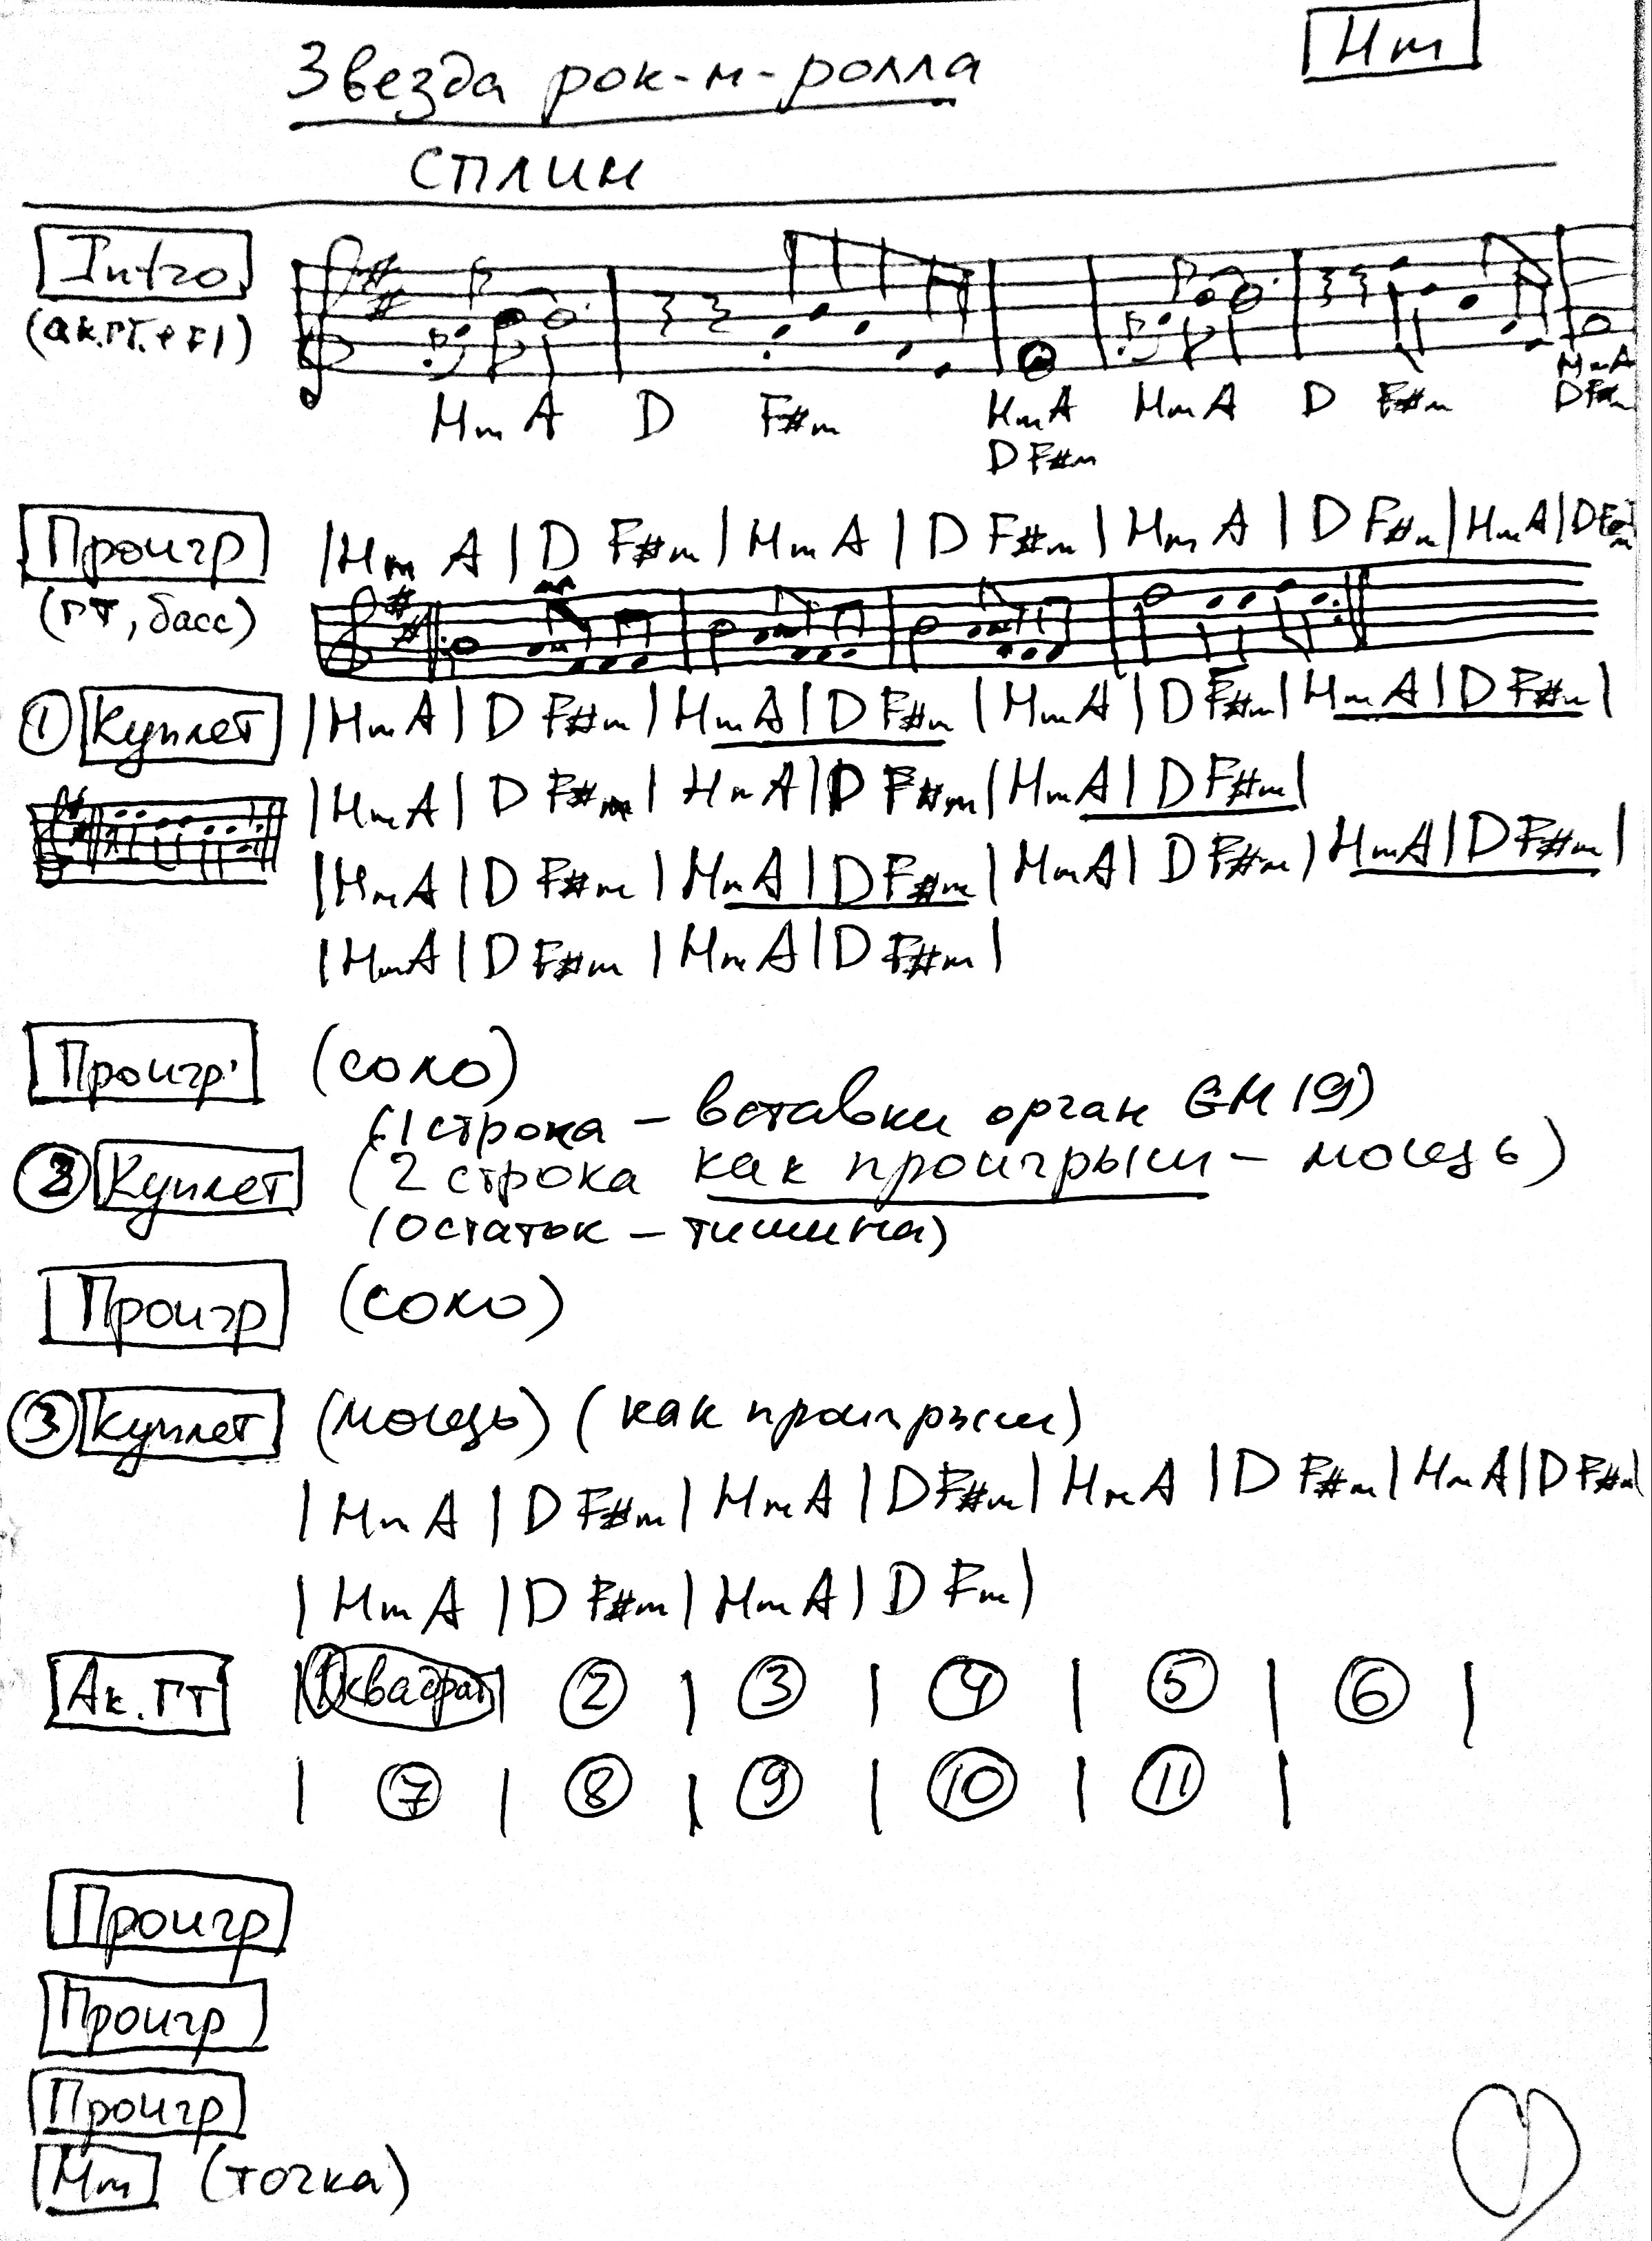 Звезда рок-н-ролла
Hm
СПЛИН
Intro
(ак.гт. + Fl)
Hm A D F#m HmA HmA D F#m HmA
D F#m DF#m
Проигр |Hm A | D F#m | Hm A | D F#m | Hm A | D F#m | HmA | DF#m
(гт, басс)
① Куплет |HmA | D F#m | HmA | DF#m | HmA | DF#m | HmA | DF#m |
|HmA | D F#m | HmA | D F#m | HmA | DF#m |
|HmA | D F#m | HmA | DF#m | HmA | DF#m | HmA | DF#m |
|HmA | D F#m | HmA | D F#m |
Проигр. (соло)
(1 строка – вставки орган GM 19)
② Куплет (2 строка как проигрыш – мощь)
(остаток – тишина)
Проигр (соло)
③ Куплет (мощь) (как проигрыш)
| Hm A | D F#m | HmA | DF#m | HmA | D F#m | HmA | DF#m
| Hm A | D F#m | HmA | D Fm |
Ак. гт | ① квадрат | ② | ③ | ④ | ⑤ | ⑥ |
| ⑦ | ⑧ | ⑨ | ⑩ | ⑪ |
Проигр
Проигр
Проигр
Hm (точка)